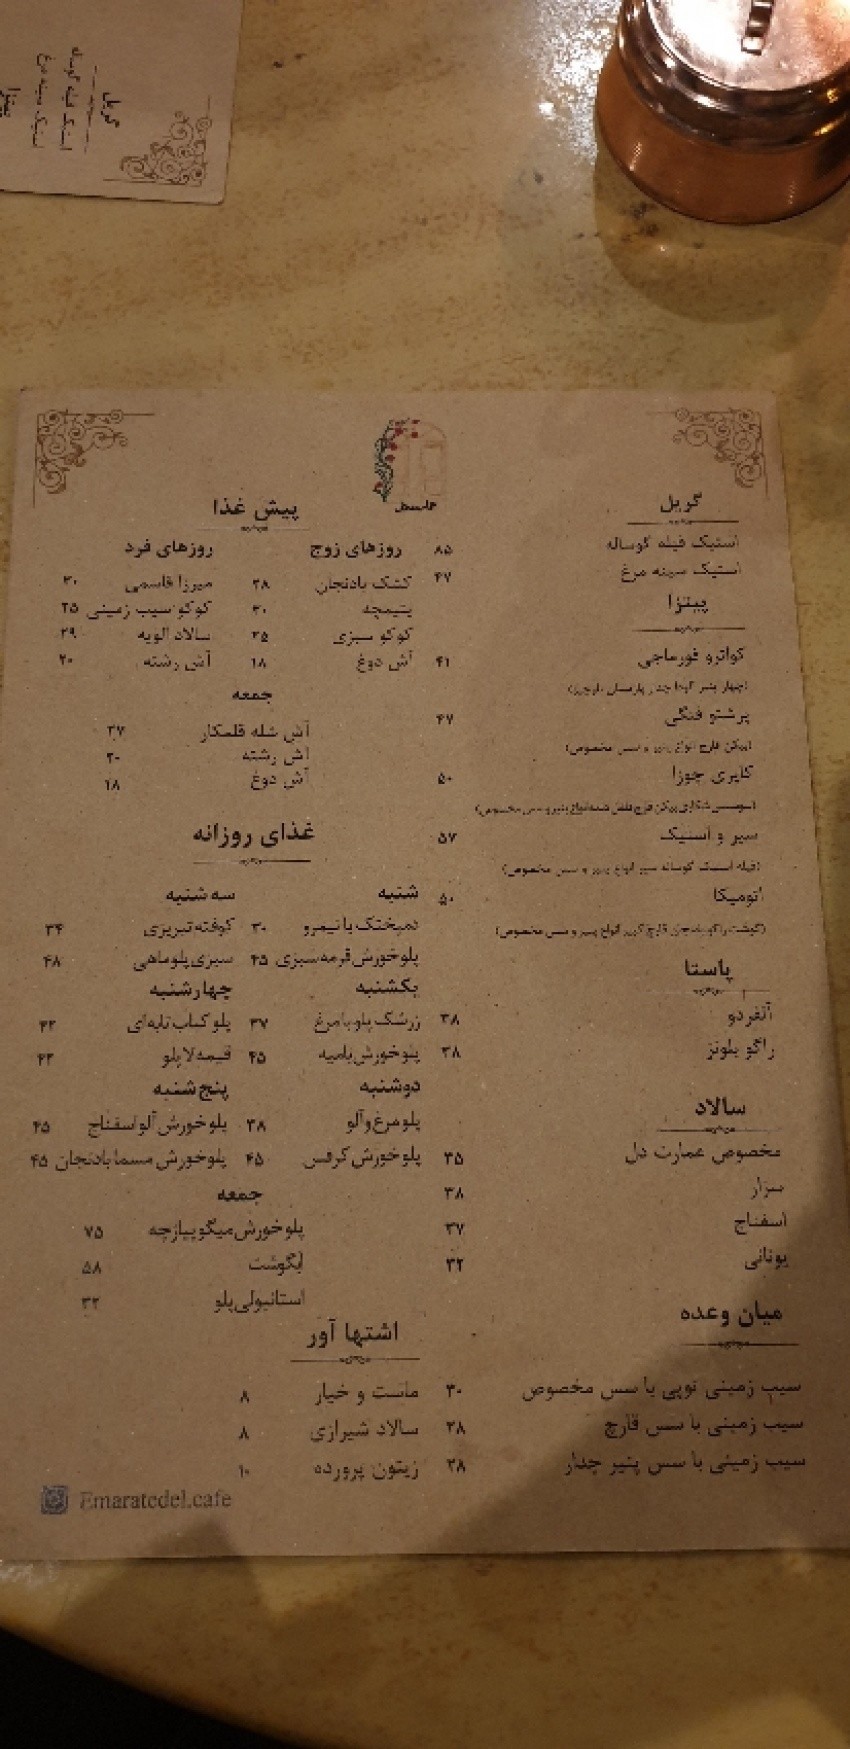 گریل
استیک فیله گوساله ۸۵
استیک سینه مرغ ۴۷
پیتزا
کواترو فورماجی ۴۱
(چهار پنیر گودا چدار پارمسان
پرشتو فنگی ۴۷
(بیکن قارچ انواع پنیر و سس مخصوص)
کابری جوزا ۵۰
قارچ فلفل انواع پنیر و سس مخصوص)
سیر و استیک ۵۷
(فیله استیک گوساله سیر انواع پنیر و سس مخصوص)
اتومیکا ۵۰
قارچ انواع پنیر و سس مخصوص)
پاستا
آلفردو ۳۸
راگو بلونز ۳۸
سالاد
مخصوص عمارت دل ۳۵
سزار ۳۸
اسفناج ۳۷
یونانی ۳۲
میان وعده
سیب زمینی تویی با سس مخصوص ۳۰
سیب زمینی با سس قارچ ۲۸
سیب زمینی با سس پنیر چدار ۲۸
پیش غذا
روزهای زوج
کشک بادنجان ۲۸
یتیمچه ۲۰
کوکو سبزی ۲۵
آش دوغ ۱۸
روزهای فرد
میرزا قاسمی ۳۰
کوکو سیب زمینی ۲۵
سالاد الویه ۲۹
آش رشته ۲۰
جمعه
آش شله قلمکار ۲۷
آش رشته ۲۰
آش دوغ ۱۸
غذای روزانه
شنبه
دمپختک با نیمرو ۳۰
پلو خورش قرمه سبزی ۴۵
یکشنبه
زرشک پلو با مرغ ۳۷
پلو خورش بامیه ۴۵
دوشنبه
پلو مرغ و آلو ۳۸
پلو خورش کرفس ۴۵
سه شنبه
کوفته تبریزی ۳۴
سبزی پلو ماهی ۴۸
چهارشنبه
پلو کباب تابه‌ای ۴۲
قیمه لا پلو ۴۲
پنج شنبه
پلو خورش آلو اسفناج ۴۵
پلو خورش مسما بادنجان ۴۵
جمعه
پلو خورش میگو پیازچه ۷۵
آبگوشت ۵۸
استانبولی پلو ۳۲
اشتها آور
ماست و خیار ۸
سالاد شیرازی ۸
زیتون پرورده ۱۰
Emaratedel.cafe
گریل
استیک فیله گوساله
استیک سینه مرغ
پیتزا